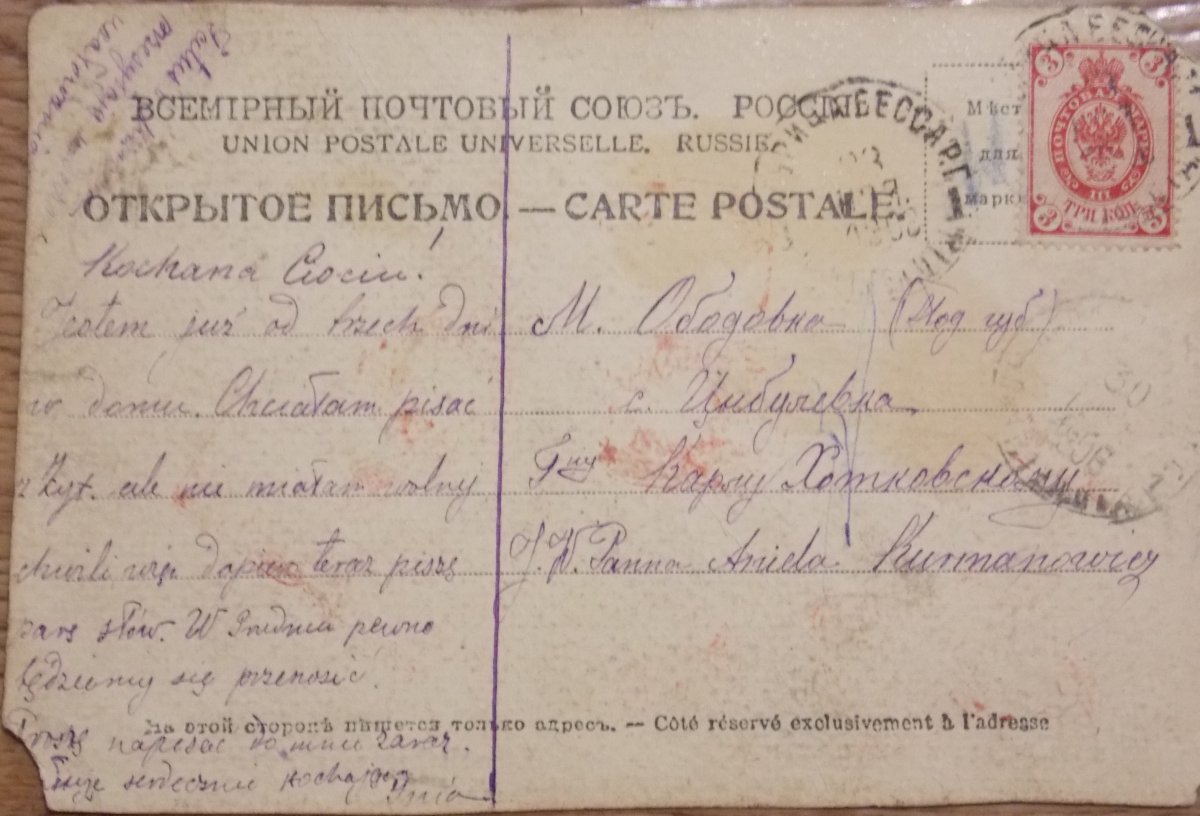 ВСЕМІРНЫЙ ПОЧТОВЫЙ СОЮЗЪ. РОССІЯ.
UNION POSTALE UNIVERSELLE. RUSSIE.
ОТКРЫТОЕ ПИСЬМО. — CARTE POSTALE.
Мѣст
для
марк
ПОЧТОВАЯ МАРКА
3 3
ТРИ КОП.
3 3
БЕССАР. Г.
Kochana Ciociu!
Jestem już od trzech dni
w domu. Chciałam pisać
z Żyt. ale nie miałam wolny
chwili więc dopiero teraz piszę
parę słów. W Grudniu pewno
będziemy się przenosić.
Proszę napisać do mnie zaraz.
serdecznie kochająca
М. Ободовка (Под губ)
с. Цыбулевка
Гну Карлу Хотковскому
J. W. Panna Aniela Kurmanowicz
На этой сторонѣ пишется только адресъ. — Côté réservé exclusivement à l'adresse